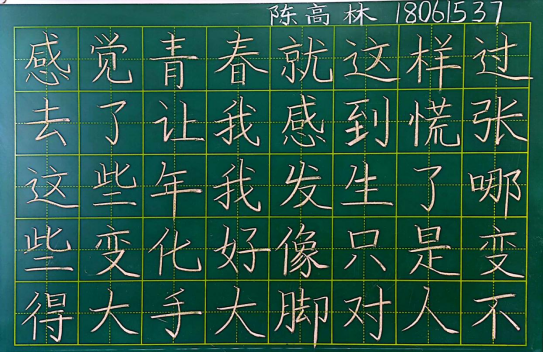 陈高林 18061537
感觉青春就这样过
去了让我感到慌张
这些年我发生了哪
些变化好像只是变
得大手大脚对人不